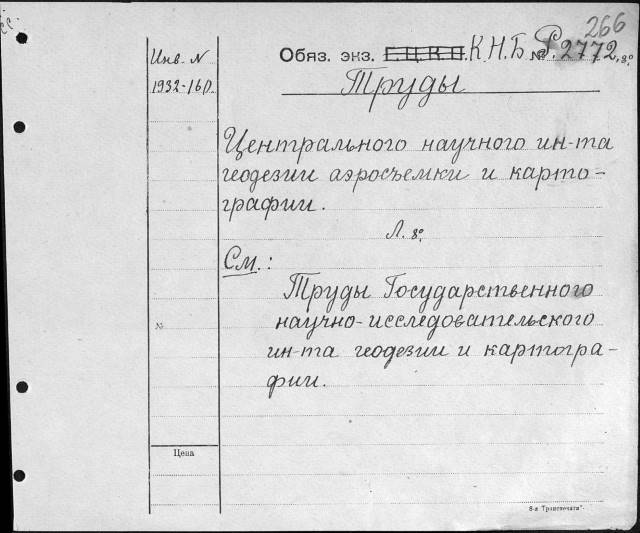 266
Инв. N
1932-16 р.
Обяз. экз. Г.Ц.К.П. К.Н.Б. № Р. 2772, 8º
Труды
Центрального научного ин-та
геодезии аэросъемки и карто-
графии.
Л. 8º,
См.:
Труды Государственного
№ научно-исследовательского
ин-та геодезии и картогра-
фии.
Цена
8-я Транспечати".